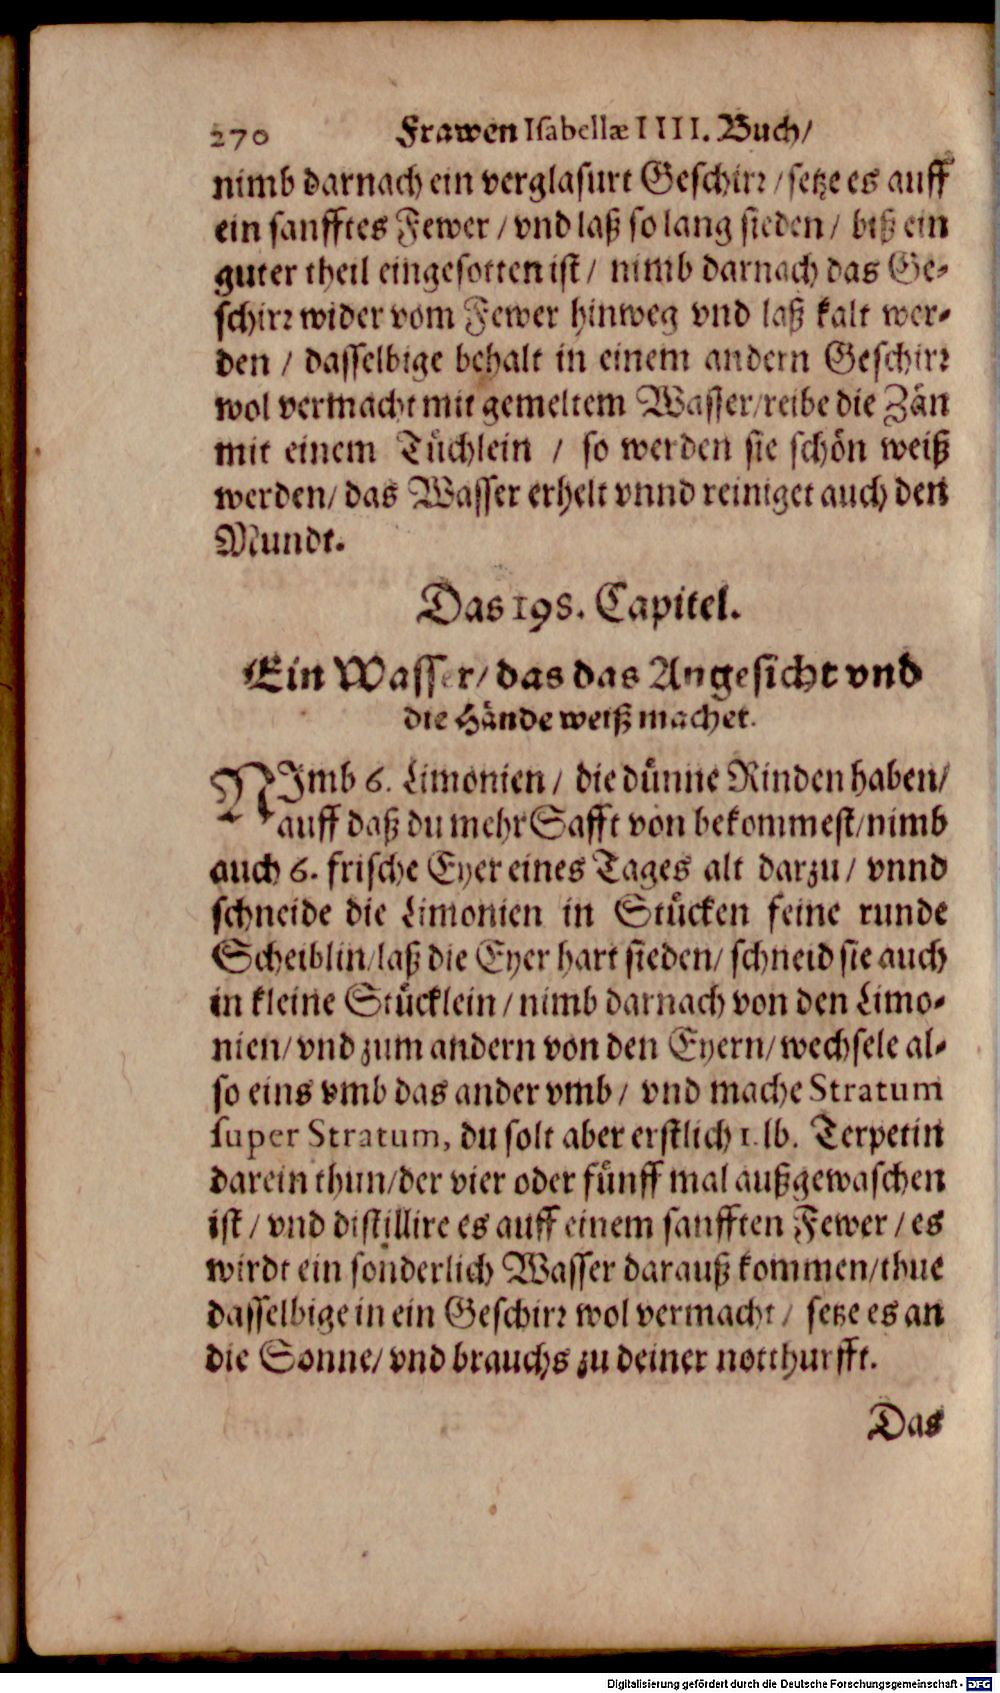 270 Frawen Isabellæ IIII. Buch/
nimb darnach ein verglasurt Geschirr / setze es auff
ein sanfftes Fewer / vnd laß so lang sieden / biß ein
guter theil eingesotten ist / nimb darnach das Ge-
schirr wider vom Fewer hinweg vnd laß kalt wer-
den / dasselbige behalt in einem andern Geschirr
wol vermacht mit gemeltem Wasser/reibe die Zän
mit einem Tüchlein / so werden sie schön weiß
werden/ das Wasser erhelt vnnd reiniget auch den
Mundt.
Das 198. Capitel.
Ein Wasser/ das das Angesicht vnd
die Hände weiß machet.
NImb 6. Limonien / die dünne Rinden haben/
auff daß du mehr Safft von bekommest/nimb
auch 6. frische Eyer eines Tages alt darzu / vnnd
schneide die Limonien in Stücken feine runde
Scheiblin/laß die Eyer hart sieden/ schneid sie auch
in kleine Stücklein / nimb darnach von den Limo-
nien/ vnd zum andern von den Eyern/ wechsele al-
so eins vmb das ander vmb / vnd mache Stratum
super Stratum, du solt aber erstlich 1. lb. Terpetin
darein thun/der vier oder fünff mal außgewaschen
ist / vnd distillire es auff einem sanfften Fewer / es
wirdt ein sonderlich Wasser darauß kommen/thue
dasselbige in ein Geschirr wol vermacht / setze es an
die Sonne/ vnd brauchs zu deiner notthurfft.
Das
Digitalisierung gefördert durch die Deutsche Forschungsgemeinschaft - DFG